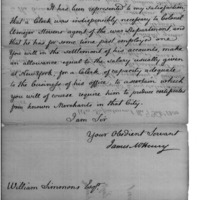 It has been represented to my satisfaction
that a Clerk was indispensibly necessary to Colonel
Ebenezer Stevens agent of the War Department and
that he has for some time past employed one.
You will in the settlement of his accounts, make
an allowance equal to the salary usually given
at New York, for a Clerk of capacity adequate
to the business of his office, to ascertain which
you will of course require him to produce certificates
from known Merchants in that City.
I am Sir
Your Obedient Servant
James McHenry
William Simmons Esqr